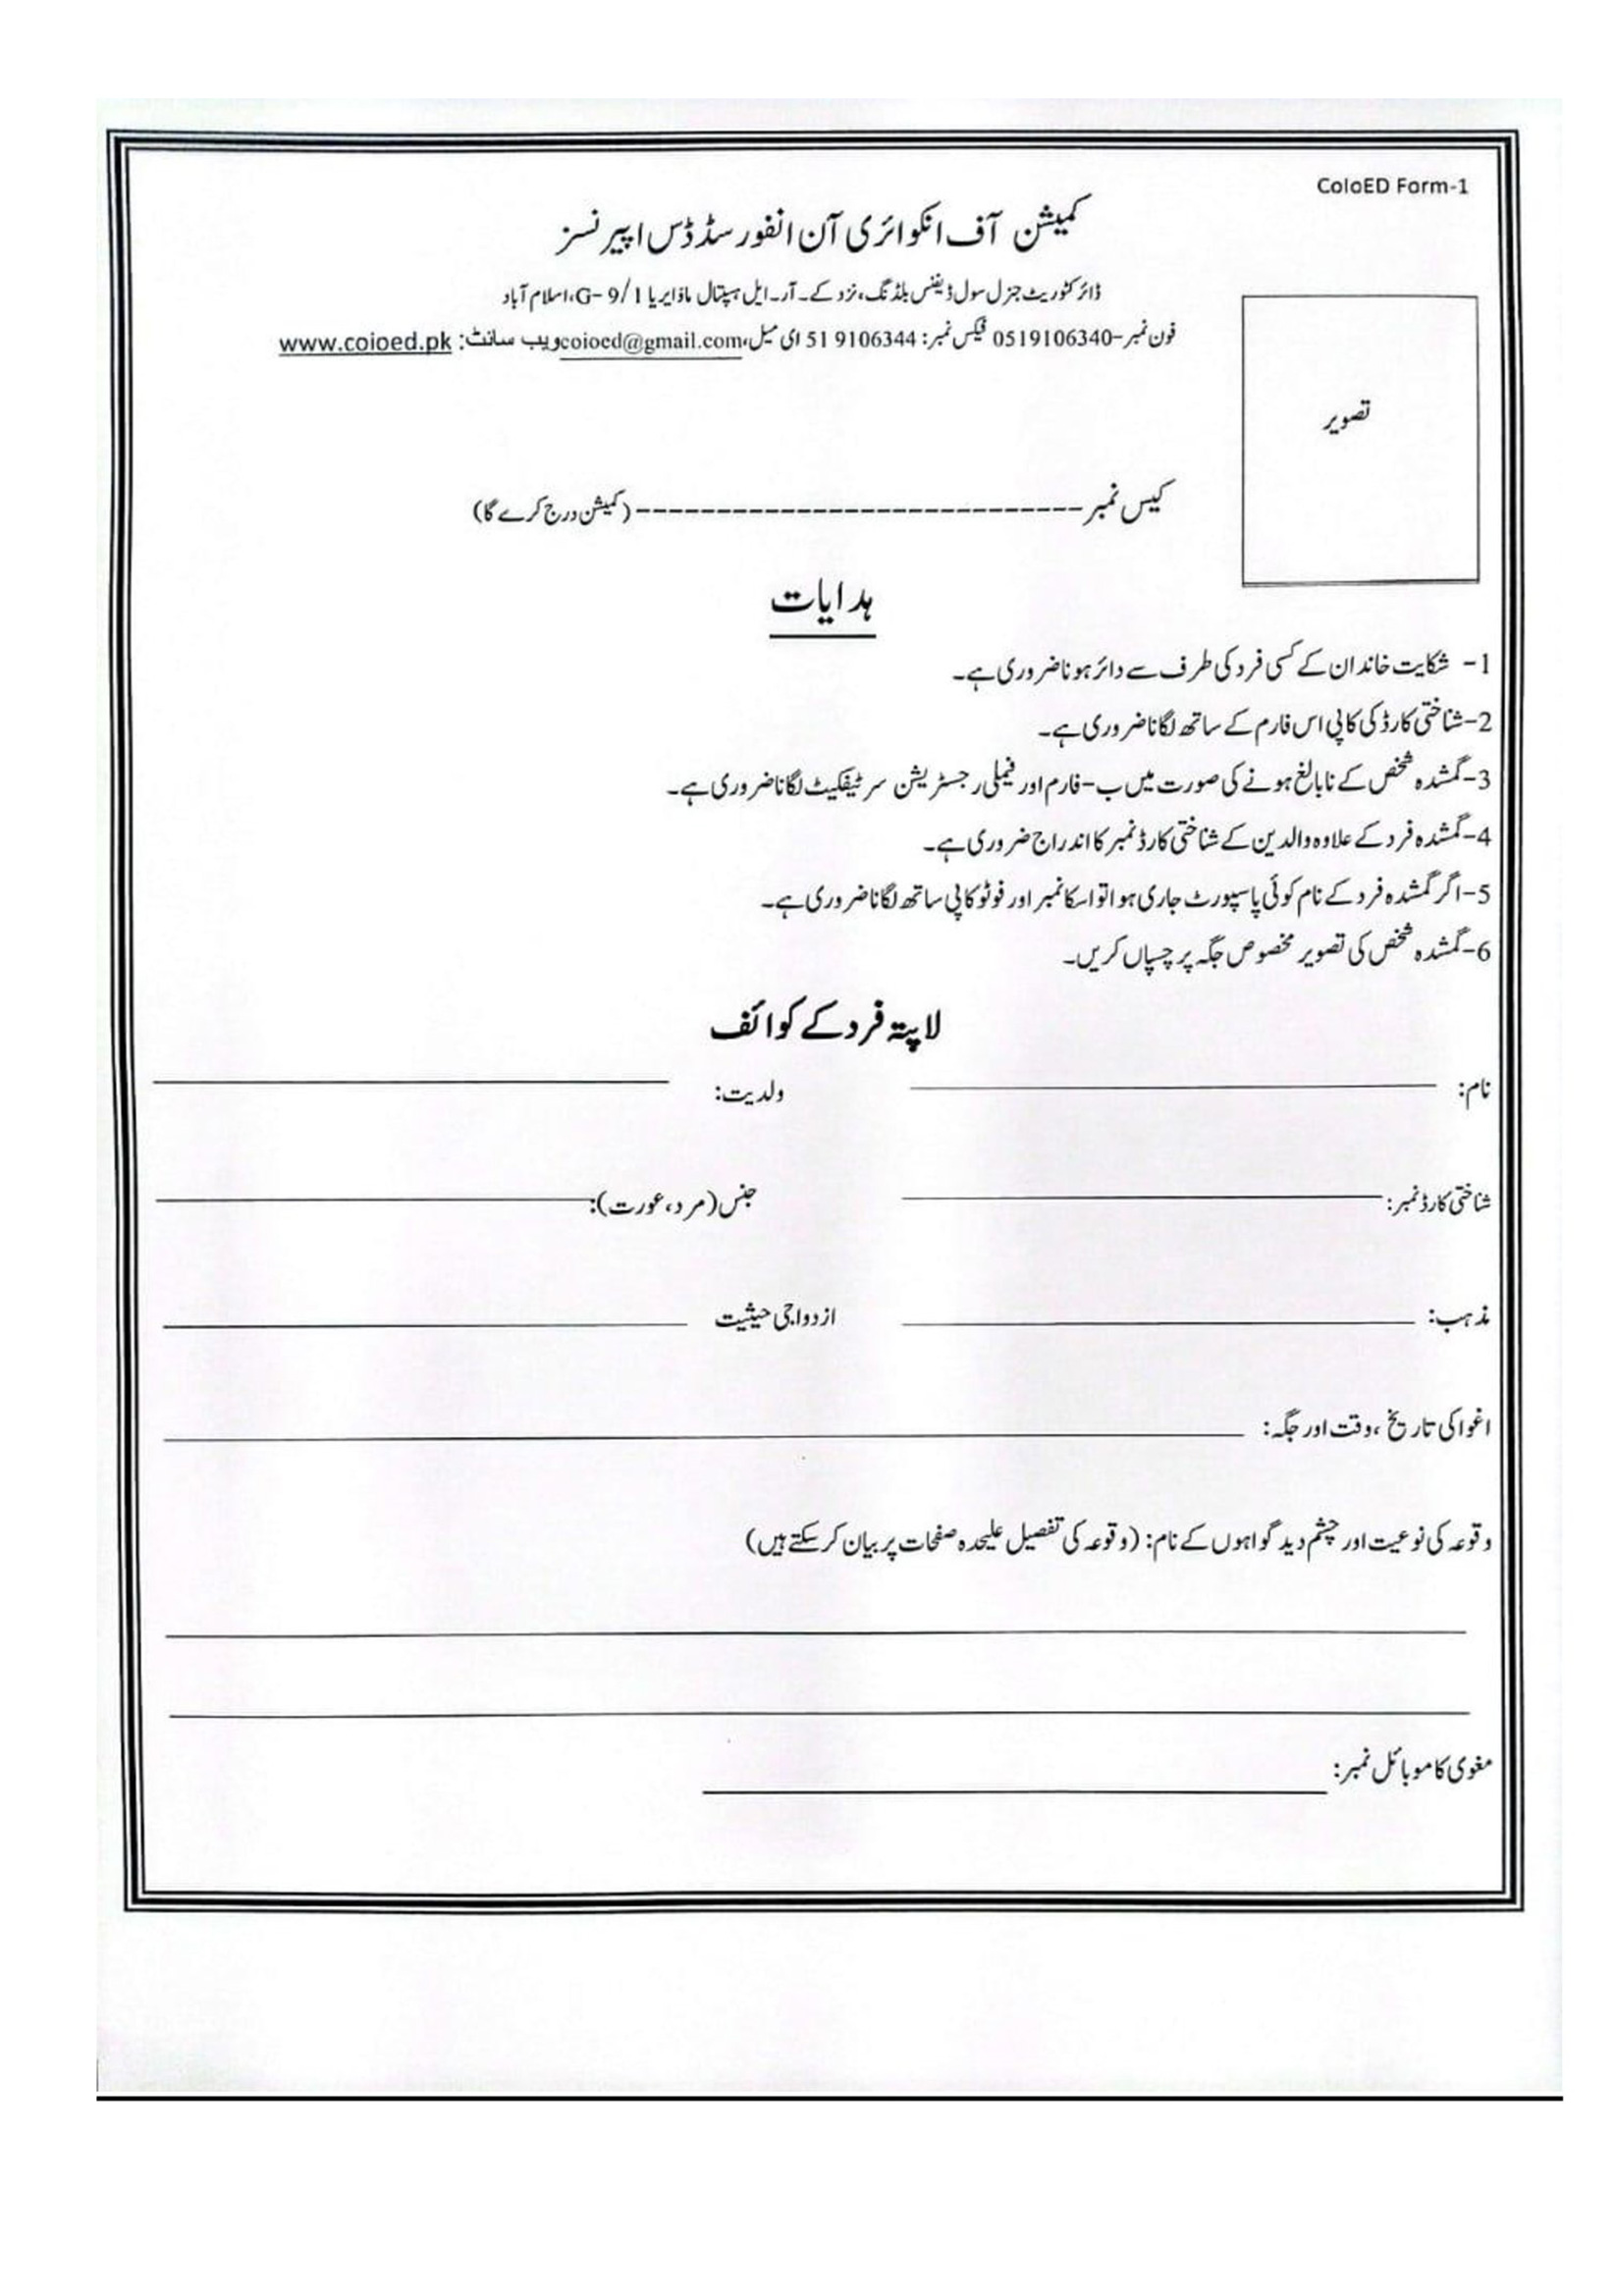 CoIoED Form-1
کمیشن آف انکوائری آن انفورسڈ ڈس اپیرنسز
ڈائرکٹوریٹ جنرل سول ڈیفنس بلڈنگ، نزد کے۔ آر۔ ایل ہسپتال ماؤ ایریا G- 9/1، اسلام آباد
فون نمبر–0519106340 فیکس نمبر: 9106344 51 ای میل،coioed@gmail.comویب سائٹ: www.coioed.pk
تصویر
کیس نمبر ---------------------------- (کمیشن درج کرے گا)
ہدایات
1- شکایت خاندان کے کسی فرد کی طرف سے دائر ہونا ضروری ہے۔
2-شناختی کارڈ کی کاپی اس فارم کے ساتھ لگانا ضروری ہے۔
3-گمشدہ شخص کے نابالغ ہونے کی صورت میں ب-فارم اور فیملی رجسٹریشن سرٹیفکیٹ لگانا ضروری ہے۔
4-گمشدہ فرد کے علاوہ والدین کے شناختی کارڈ نمبر کا اندراج ضروری ہے۔
5-اگر گمشدہ فرد کے نام کوئی پاسپورٹ جاری ہوا تو اسکا نمبر اور فوٹو کاپی ساتھ لگانا ضروری ہے۔
6-گمشدہ شخص کی تصویر مخصوص جگہ پر چسپاں کریں۔
لاپتہ فرد کے کوائف
نام: ولدیت:
شناختی کارڈ نمبر: جنس (مرد، عورت):
مذہب: ازدواجی حیثیت
اغوا کی تاریخ ،وقت اور جگہ:
وقوعہ کی نوعیت اور چشم دید گواہوں کے نام: (وقوعہ کی تفصیل علیحدہ صفحات پر بیان کر سکتے ہیں)
مغوی کا موبائل نمبر: